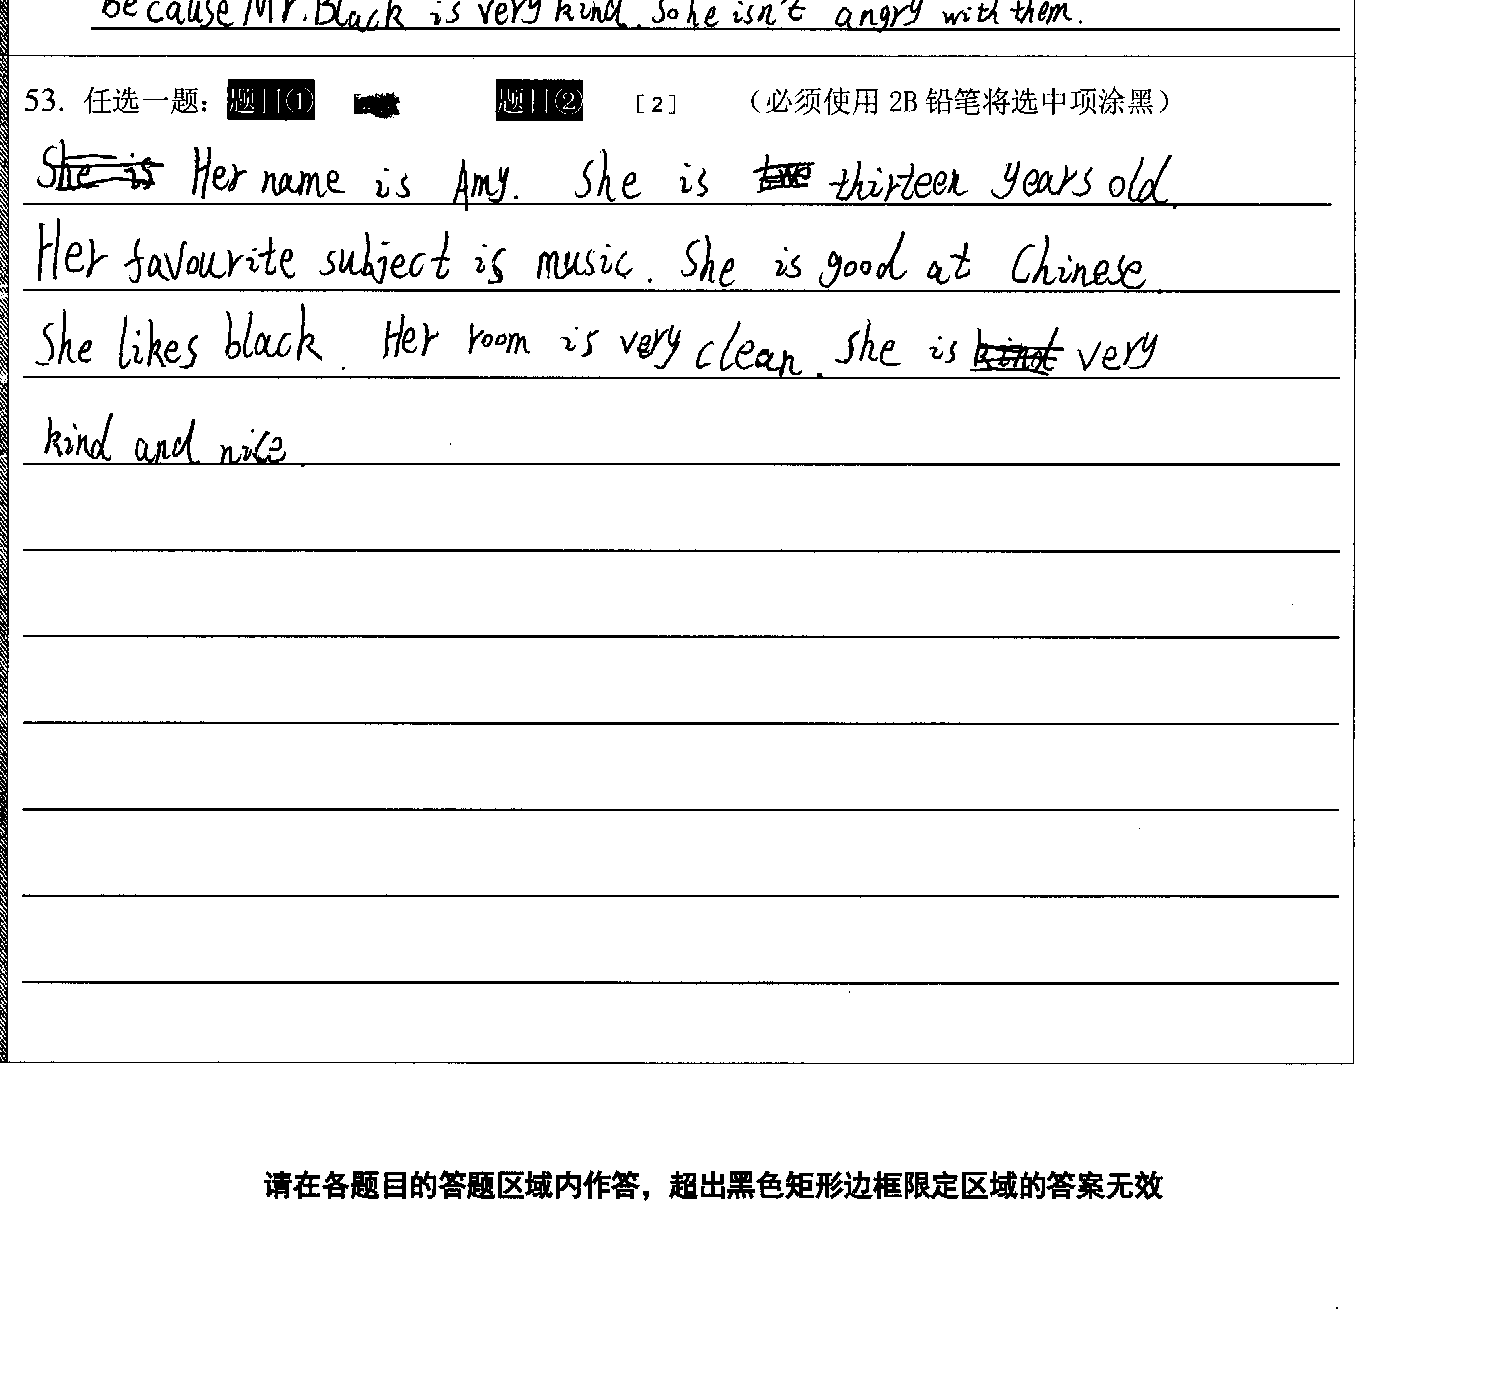 because Mr. Black is very kind. So he isn't angry with them.
53. 任选一题： 题目① 题目② [2] （必须使用 2B 铅笔将选中项涂黑）
She is Her name is Amy. She is thirteen years old.
Her favourite subject is music. She is good at Chinese.
She likes black. Her room is very clean. She is kind very
kind and nice.
请在各题目的答题区域内作答，超出黑色矩形边框限定区域的答案无效